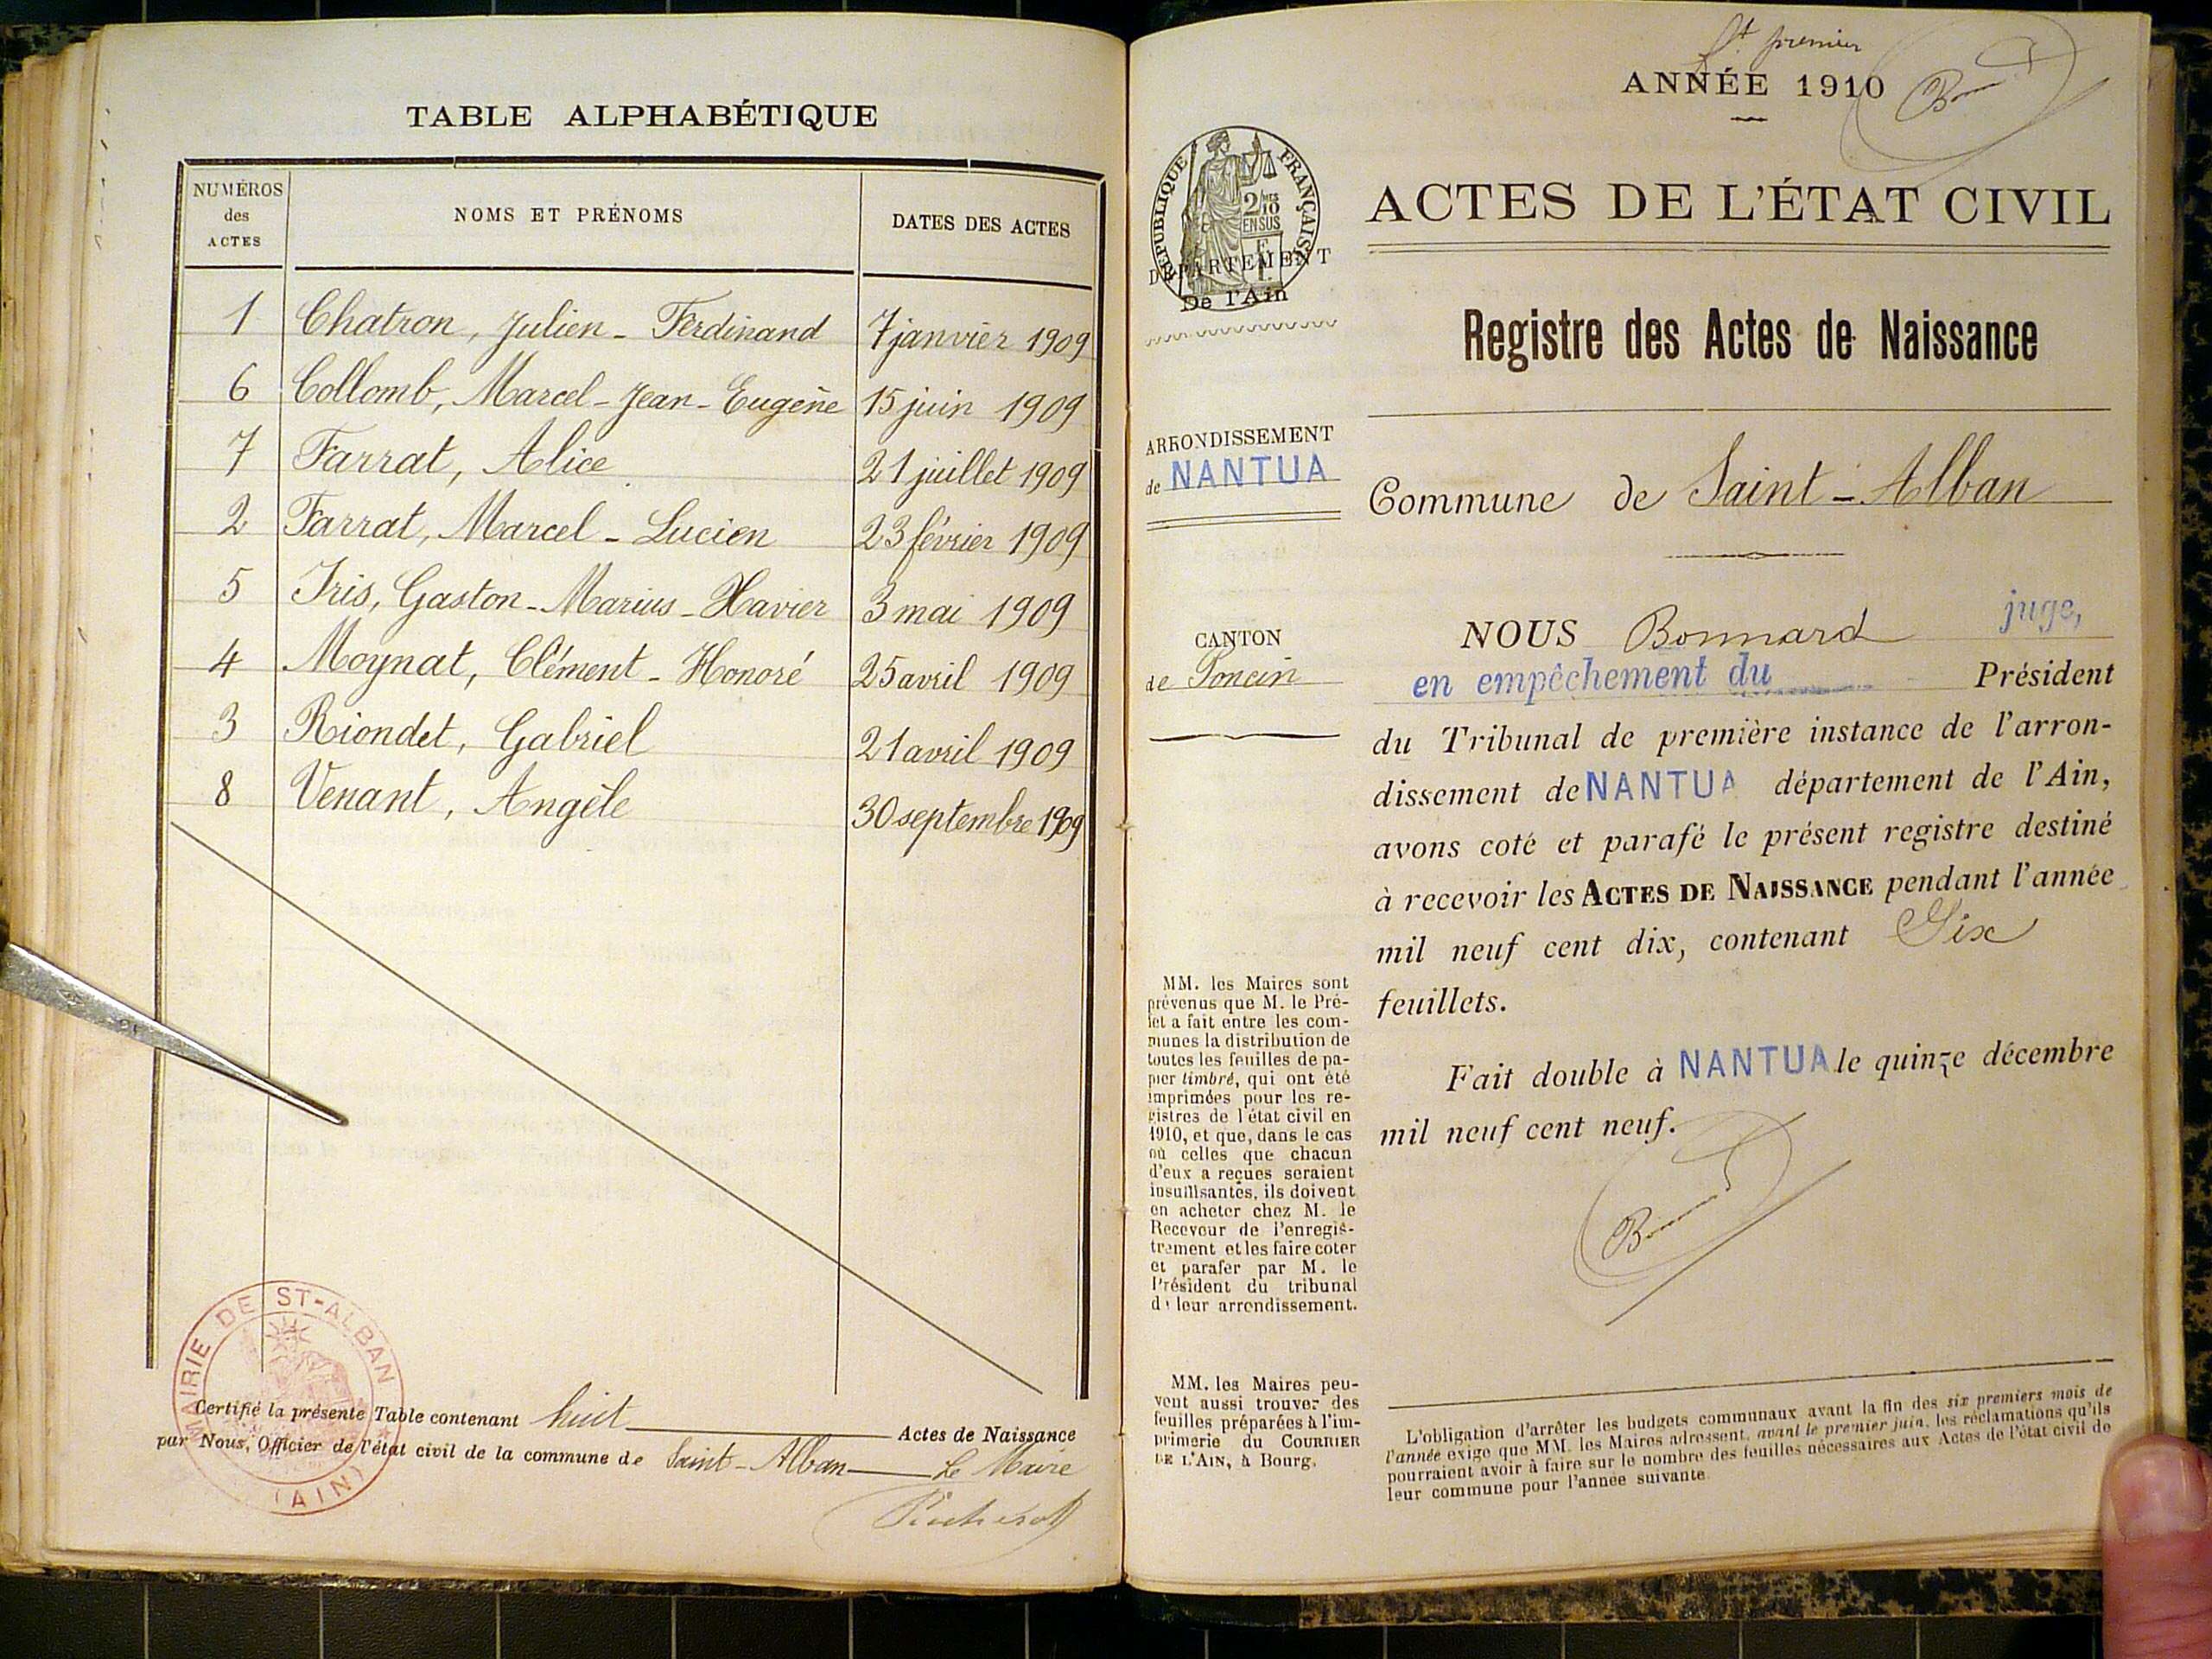 TABLE ALPHABÉTIQUE
NUMÉROS des ACTES
NOMS ET PRÉNOMS
DATES DES ACTES
1 Chatron, Julien - Ferdinand 7 janvier 1909
6 Collomb, Marcel - Jean - Eugène 15 juin 1909
7 Farrat, Alice 21 juillet 1909
2 Farrat, Marcel - Lucien 23 février 1909
5 Iris, Gaston - Marius - Xavier 3 mai 1909
4 Moynat, Clément - Honoré 25 avril 1909
3 Riondet, Gabriel 21 avril 1909
8 Venant, Angèle 30 septembre 1909
MAIRIE DE ST-ALBAN
(AIN)
Certifié la présente Table contenant huit Actes de Naissance
par Nous, Officier de l'état civil de la commune de Saint - Alban Le Maire
premier
ANNÉE 1910
RÉPUBLIQUE FRANÇAISE
2/10
EN SUS
DÉPARTEMENT
De l'Ain
ACTES DE L'ÉTAT CIVIL
Registre des Actes de Naissance
ARRONDISSEMENT
de NANTUA
Commune de Saint - Alban
CANTON
de Poncin
NOUS Bonnard juge,
en empêchement du Président
du Tribunal de première instance de l'arron-
dissement de NANTUA département de l'Ain,
avons coté et parafé le présent registre destiné
à recevoir les ACTES DE NAISSANCE pendant l'année
mil neuf cent dix, contenant Six
feuillets.
Fait double à NANTUA le quinze décembre
mil neuf cent neuf.
MM. les Maires sont
prévenus que M. le Pré-
fet a fait entre les com-
munes la distribution de
toutes les feuilles de pa-
pier timbré, qui ont été
imprimées pour les re-
gistres de l'état civil en
1910, et que, dans le cas
où celles que chacun
d'eux a reçues seraient
insuffisantes, ils doivent
en acheter chez M. le
Receveur de l'enregis-
trement et les faire coter
et parafer par M. le
Président du tribunal
de leur arrondissement.
MM. les Maires peu-
vent aussi trouver des
feuilles préparées à l'im-
primerie du COURRIER
DE L'AIN, à Bourg.
L'obligation d'arrêter les budgets communaux avant la fin des six premiers mois de
l'année exige que MM. les Maires adressent, avant le premier juin, les réclamations qu'ils
pourraient avoir à faire sur le nombre des feuilles nécessaires aux Actes de l'état civil de
leur commune pour l'année suivante.